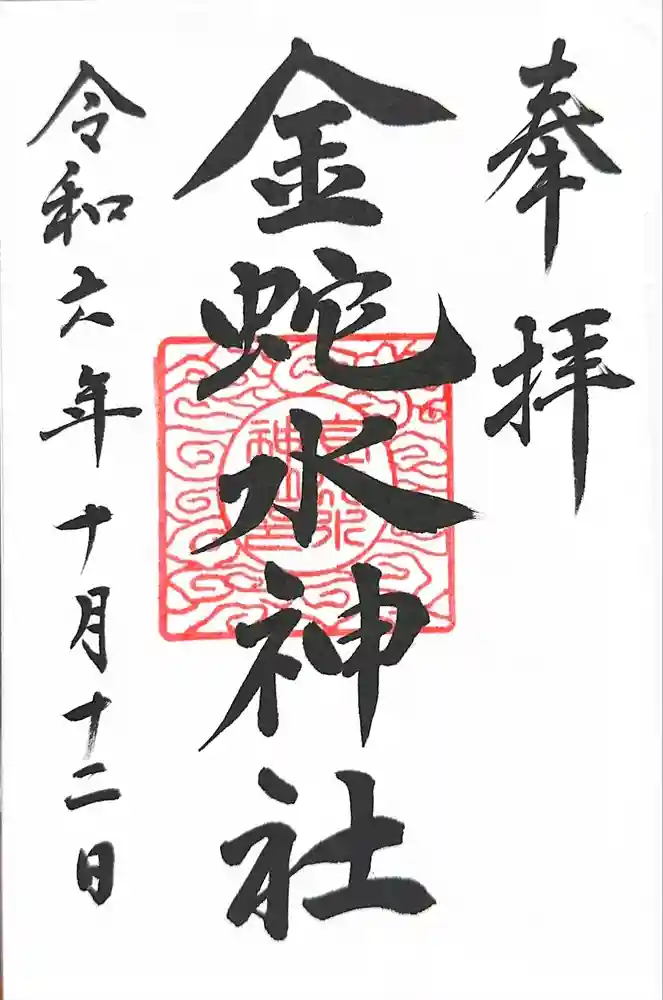 奉拝
金蛇水神社
令和六年十月十二日